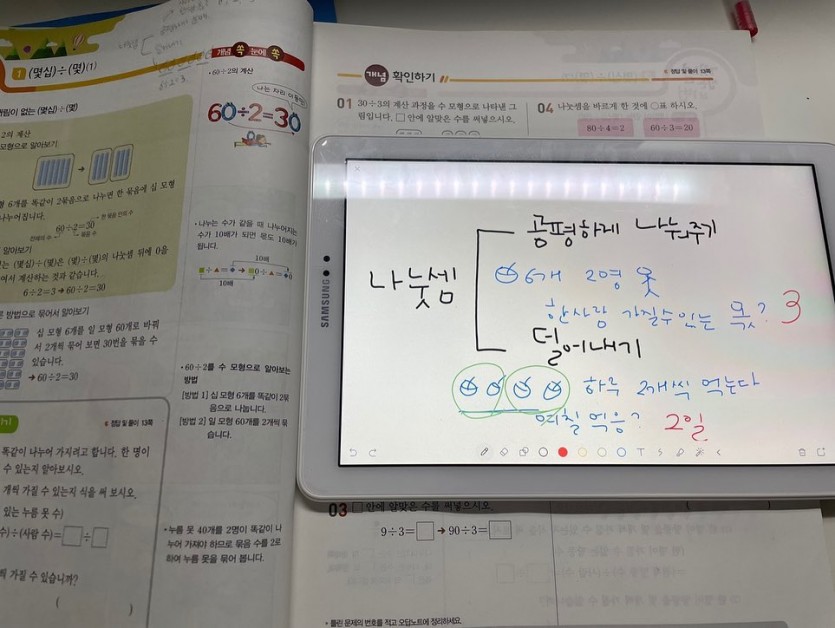 1 (몇십)÷(몇)(1)
개념 쏙 눈에 쏙
• 60÷2의 계산
60÷2=30
내림이 없는 (몇십)÷(몇)
2의 계산
모형으로 알아보기
형 6개를 똑같이 2묶음으로 나누면 한 묶음에 십 모형
나누어집니다.
60÷2=30
한 묶음 안의 수
전체의 수
묶음 수
알아보기
는 (몇십)÷(몇)은 (몇)÷(몇)의 나눗셈 뒤에 0을
여서 계산하는 것과 같습니다.
6÷2=3 → 60÷2=30
방법으로 묶어서 알아보기
십 모형 6개를 일 모형 60개로 바꿔
서 2개씩 묶어 보면 30번을 묶을 수
있습니다.
→ 60÷2=30
• 나누는 수가 같을 때 나누어지는
수가 10배가 되면 몫도 10배가
됩니다.
10배
10배
• 60÷2를 수 모형으로 알아보는
방법
[방법 1] 십 모형 6개를 똑같이 2묶
음으로 나눕니다.
[방법 2] 일 모형 60개를 2개씩 묶
습니다.
정답 및 풀이 13쪽
똑같이 나누어 가지려고 합니다. 한 명이
수 있는지 알아보시오.
개씩 가질 수 있는지 식을 써 보시오.
있는 누름 못 수)
수)÷(사람 수)=□÷□
씩 가질 수 있습니까?
( )
• 누름 못 40개를 2명이 똑같이 나
누어 가져야 하므로 묶음 수를 2로
하여 누름 못을 묶어 봅니다.
개념 확인하기
정답 및 풀이 13쪽
01 30÷3의 계산 과정을 수 모형으로 나타낸 그
림입니다. □ 안에 알맞은 수를 써넣으시오.
04 나눗셈을 바르게 한 것에 ○표 하시오.
80÷4=2 60÷3=20
SAMSUNG
나눗셈
공평하게 나눠주기
6개 2명
한사람 가질수있는 몫? 3
덜어내기
하루 2개씩 먹는다
며칠 먹음? 2일
03 □ 안에 알맞은 수를 써넣으시오.
9÷3=□ → 90÷3=□
• 틀린 문제의 번호를 적고 오답노트에 정리하세요.